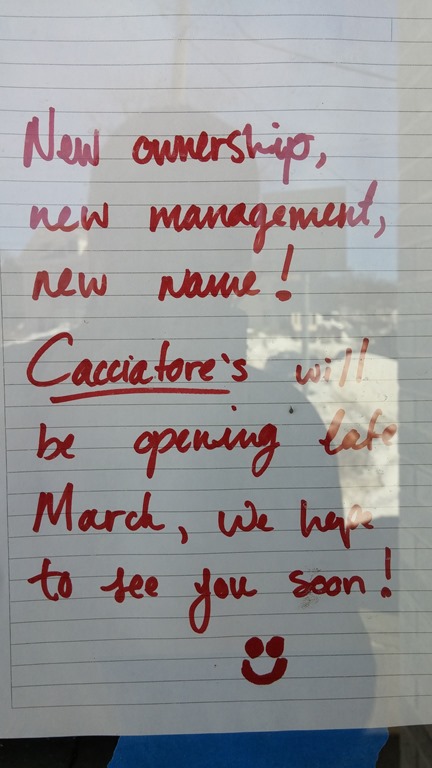 New ownership,
new management,
new name!
Cacciatore's will
be opening late
March, we hope
to see you soon!